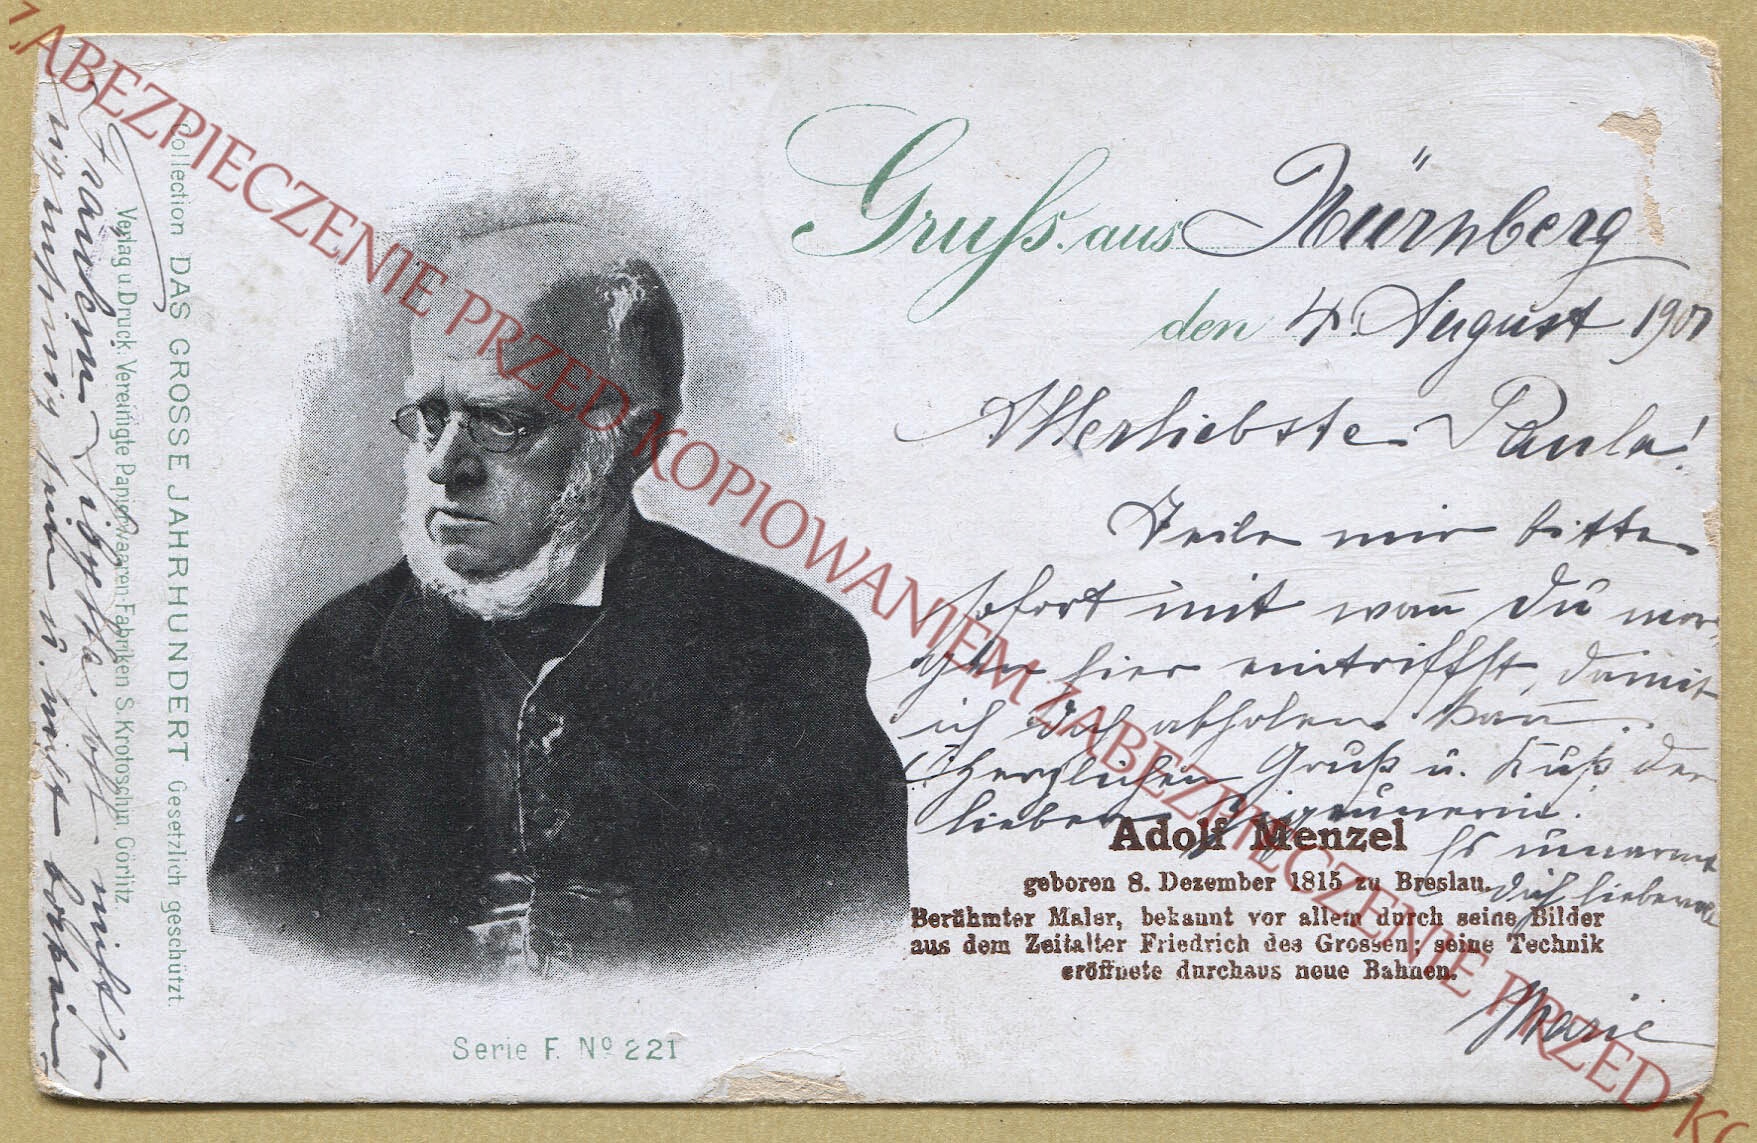 Gruss aus Nürnberg
den 4. August 1901
Allerliebste Paula!
Teile mir bitte
sofort mit wan̄ Du mor-
gen hier eintriffst, damit
ich Dich abholen kan̄.
Herzlichen Gruß u. Kuß der
lieben Zigeunerin.
Es umarmt
Dich liebend
Marie
Adolf Menzel
geboren 8. Dezember 1815 zu Breslau.
Berühmter Maler, bekannt vor allem durch seine Bilder
aus dem Zeitalter Friedrich des Grossen; seine Technik
eröffnete durchaus neue Bahnen.
Serie F. Nº 221
Collection DAS GROSSE JAHRHUNDERT Gesetzlich geschützt.
Verlag u. Druck: Vereinigte Papierwaaren-Fabriken S. Krotoschin, Görlitz.
nicht
u. nicht
ZABEZPIECZENIE PRZED KOPIOWANIEM ZABEZPIECZENIE PRZED KO